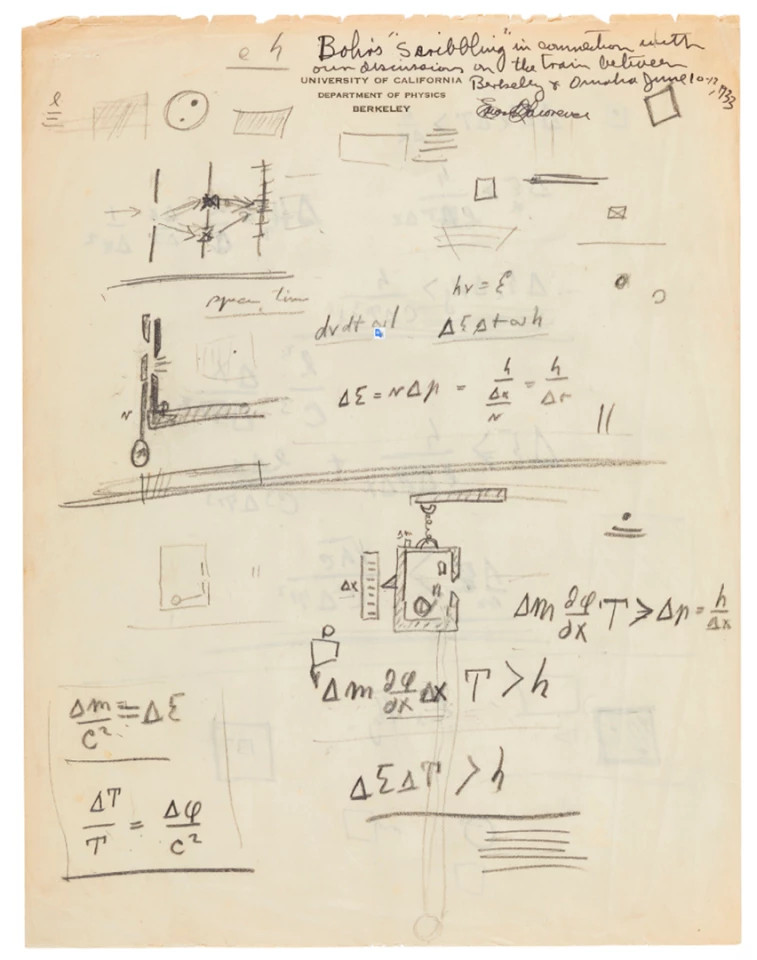 e h
Bohr's "Scribbling" in connection with
our discussions on the train between
Berkeley & Omaha June 10-12, 1933
UNIVERSITY OF CALIFORNIA
DEPARTMENT OF PHYSICS
BERKELEY
l
space time
hν = ε
dν dt ∾ 1 ΔεΔt ∾ h
Δε = vΔp = h / (Δx / v) = h / Δt
v
Δx
Δm ∂φ/∂x T > Δp = h/Δx
Δm ∂φ/∂x Δx T > h
Δm/c² = Δε
ΔεΔT > h
ΔT/T = Δφ/c²